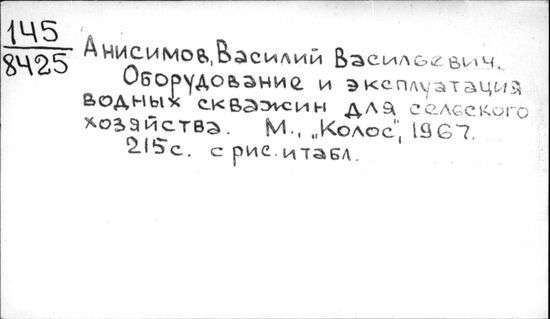 145
8425
Анисимов, Василий Васильевич.
Оборудование и эксплуатация
водных скважин для сельского
хозяйства. М., „Колос", 1967.
215с. с рис. и табл.